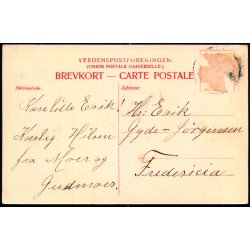 VERDENSPOSTFORENINGEN.
(UNION POSTALE UNIVERSELLE.)
BREVKORT — CARTE POSTALE
Skriveplads:
Adresse:
Kære lille Erik!
Kærlig Hilsen
fra Moer og
Gudmoer.
Hr. Erik
Gyde-Jörgensen
Fredericia